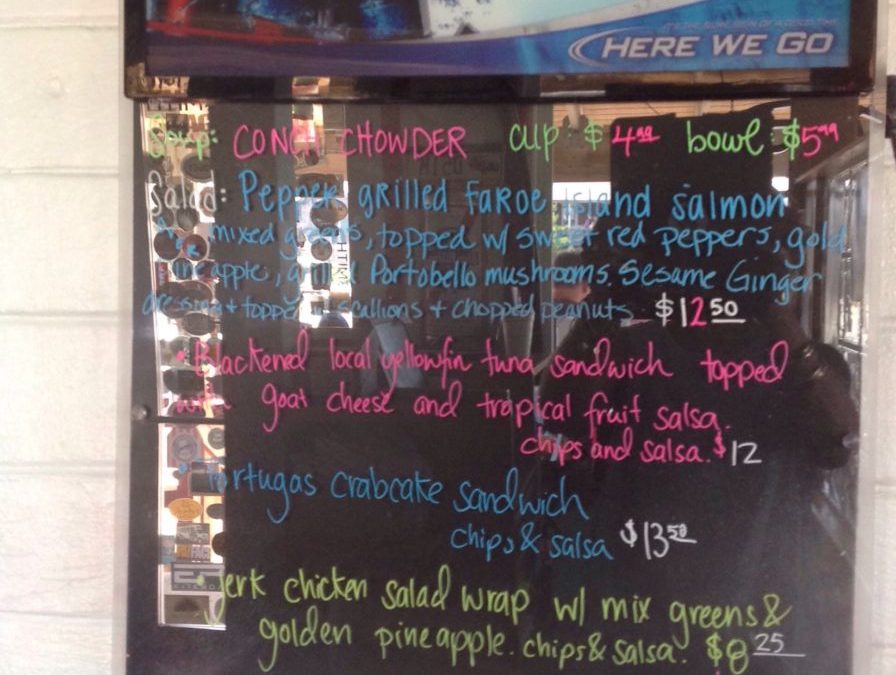 HERE WE GO
Soup: CONCH CHOWDER cup: $4.99 bowl: $5.99
Salad: Pepper grilled Faroe Island salmon
mixed greens, topped w/ sweet red peppers, gold
pineapple, grilled Portobello mushrooms. Sesame Ginger
dressing + topped w/ scallions + chopped peanuts. $12.50
• Blackened local yellowfin tuna sandwich topped
with goat cheese and tropical fruit salsa.
chips and salsa. $12
• Tortugas crabcake sandwich
chips & salsa $13.50
• Jerk chicken salad wrap w/ mix greens &
golden pineapple. chips & salsa. $8.25